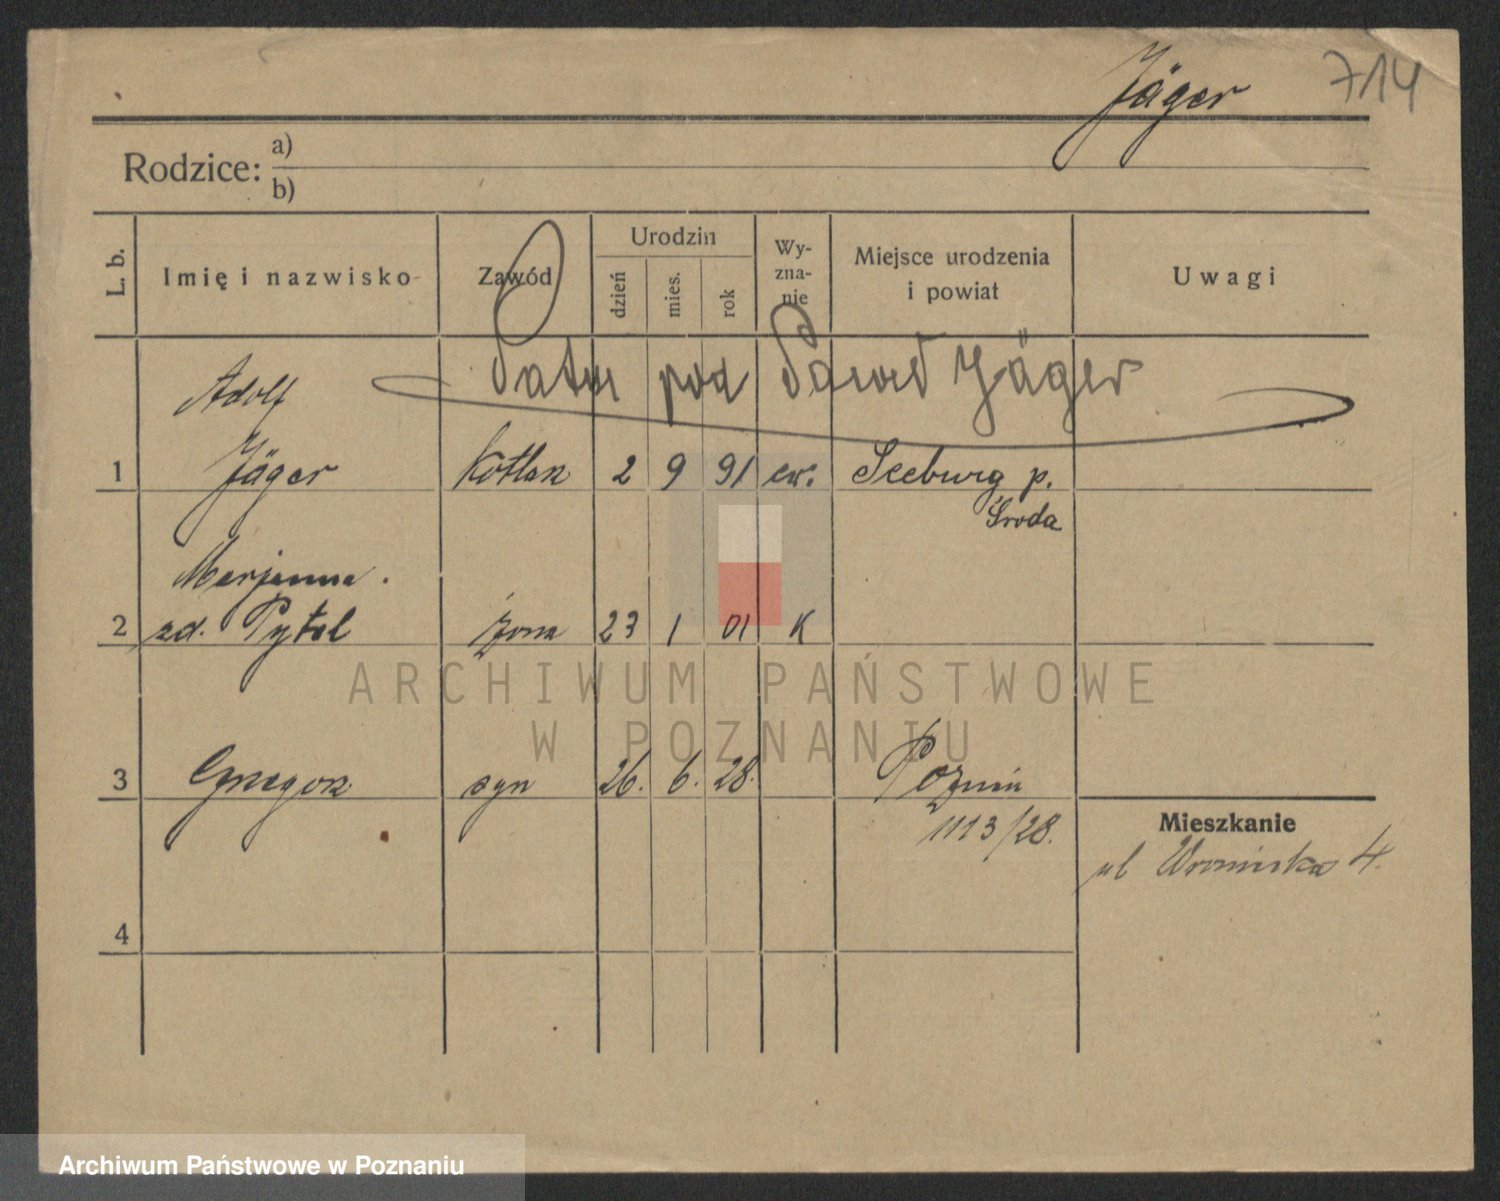 Jäger 714
Rodzice: a)
b)
L. b. Imię i nazwisko Zawód Urodzin dzień mies. rok Wy-zna-nie Miejsce urodzenia i powiat Uwagi
pod Jäger
Adolf
1 Jäger 2 9 91 ew. Seeburg p.
Środa
Marjanna
2 zd. Pytel żona 23 1 01 K
3 Grzegorz syn 26. 6. 28. Poznań
1113/28.
Mieszkanie
ul Wroniecka 4.
4
ARCHIWUM PAŃSTWOWE
W POZNANIU
Archiwum Państwowe w Poznaniu